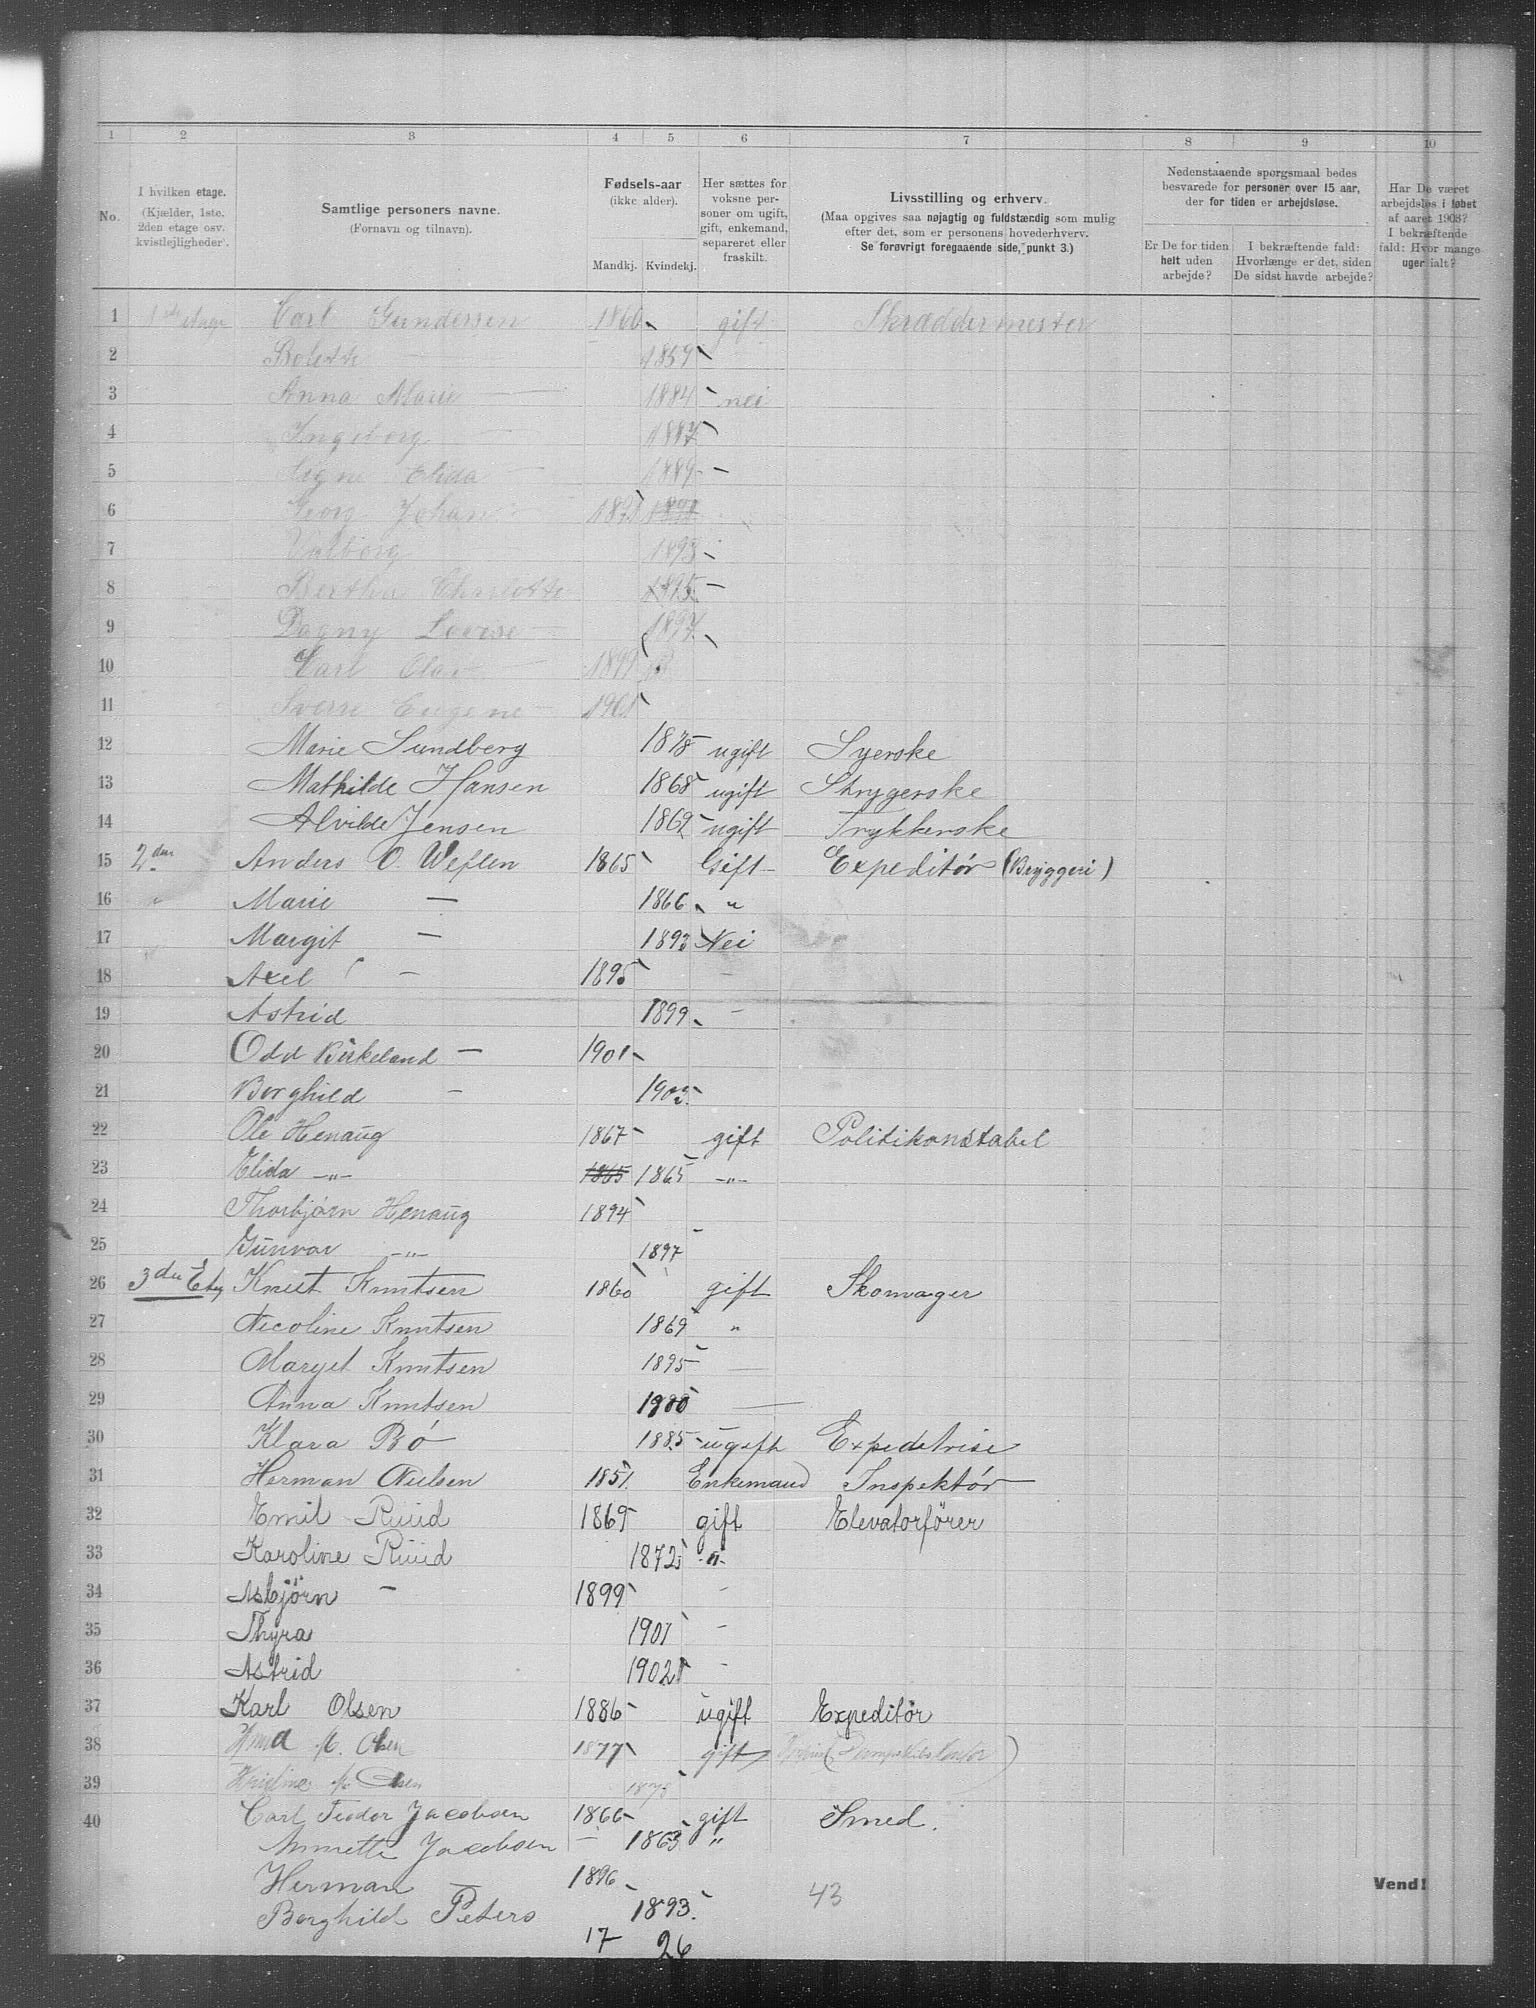 1 2 3 4 5 6 7 8 9 10
No.
I hvilken etage.
(Kjælder, 1ste, 2den etage osv. kvistlejligheder).
Samtlige personers navne.
(Fornavn og tilnavn).
Fødsels-aar
(ikke alder).
Mandkj. Kvindekj.
Her sættes for voksne personer om ugift, gift, enkemand, separeret eller fraskilt.
Livsstilling og erhverv.
(Maa opgives saa nøjagtig og fuldstændig som mulig efter det, som er personens hovederhverv.
Se forøvrigt foregaaende side, punkt 3.)
Nedenstaaende spørgsmaal bedes besvarede for personer over 15 aar, der for tiden er arbejdsløse.
Er De for tiden helt uden arbejde?
I bekræftende fald: Hvorlænge er det, siden De sidst havde arbejde?
Har De været arbejdsløs i løbet af aaret 1903? I bekræftende fald: Hvor mange uger ialt?
1 1ste etage Carl Gundersen 1860 gift Skræddermester
2 Bolette — 1859
3 Anna Marie — 1884 nei
4 Ingeborg — 1887
5 Signe Elida — 1889 —
6 Georg Johan — 1891 1891
7 Valborg 1893
8 Bertha Charlotte 1895 —
9 Dagny Lovise — 1897
10 Karl Olav — 1899
11 Sverre Eugene — 1901
12 Marie Sundberg 1878 ugift Syerske
13 Mathilde Hansen 1868 ugift Strygerske
14 Alvilde Jensen 1862 ugift Trykkerske
15 2den Anders O. Weflen 1865 Gift Expeditør (Bryggeri)
16 " Marie — 1866 "
17 " Margit — 1893 Nei
18 Axel — 1895 —
19 Astrid 1899 —
20 Odd Birkeland — 1901
21 Borghild — 1903
22 Ole Henaug 1867 gift Politikonstabel
23 Elida —"— 1865 1865 —"—
24 Thorbjørn Henaug 1894
25 Gunvor —"— 1897
26 3die Etg Knut Knutsen 1860 gift Skomager
27 Nicoline Knutsen 1869 "
28 Margit Knutsen 1895 —
29 Anna Knutsen 1900 —
30 Klara Bö 1885 ugift Expeditrise
31 Herman Nielsen 1851 Enkemand Inspektör
32 Emil Ruud 1869 gift Elevatorförer
33 Karoline Ruud 1872 "
34 Asbjörn — 1899 —
35 Thyra 1901 —
36 Astrid 1902 —
37 Karl Olsen 1886 ugift Expeditör
38 M. Olsen 1877 gift
39 Olsen 1878
40 Carl Teodor Jacobsen 1866 gift Smed.
Annette Jacobsen — 1863 "
Herman — 1896
Borghild Peters 1893.
43
17 26
Vend!